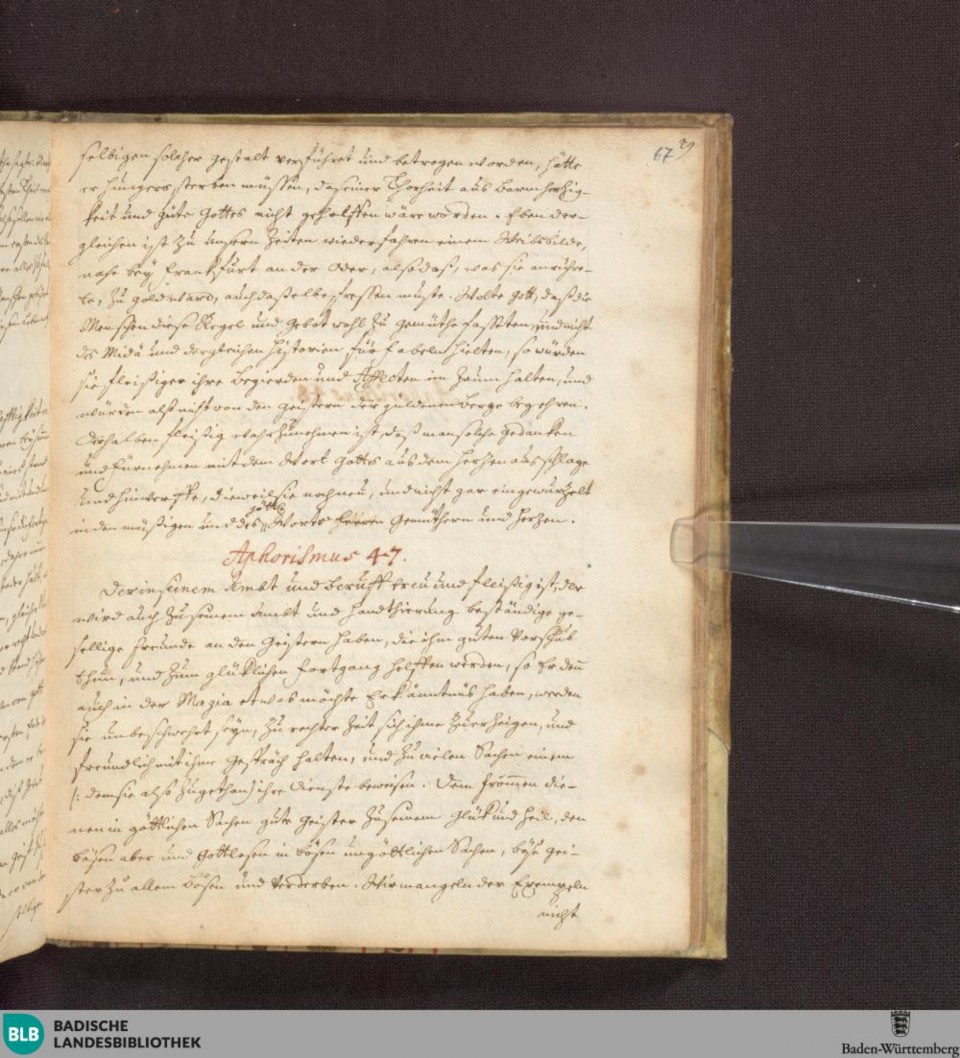 67 29
selbigen solcher gestalt verführet und betrogen worden, hätte
er hungers sterben müssen, da seiner Thorheit aus Barmhertzig-
keit und güte Gottes nicht geholffen wäre worden. Eben der-
gleichen ist zu unsern Zeiten wiederfahren einem Weibsbilde,
nahe bey Franckfurt an der Oder, also daß, was sie anrühre-
te, zu gold ward, auch daßelbe fressen muste. Wolte Gott, daß die
Menschen diese Regel und Gebot wohl zu gemüthe fasseten, und nicht
des Midä und dergleichen Historien für fabeln hielten, so würden
sie fleißiger ihre Begierden und Affecten im Zaum halten, und
würden alß nicht von den Geistern der guldenen Berge begehren.
Derhalben fleißig wahrzunehmen ist, daß man solche gedanken
und fürnehmen mit dem Wort Gottes aus dem Hertzen ausschlage
und hinwerffe, dieweil sie noch neu, und nicht gar eingewurtzelt
in den müßigen und des Worts leeren Gemüthern und Hertzen.
Aphorismus 47.
Der in seinem Ambt und Beruff treu und fleißig ist, der
wird auch zu seinem Ambt und Handthierung beständige ge-
sellige freunde an den Geistern haben, die ihm guten Vorschub
thun, und zum glüklichen fortgang helffen werden, so Er den
auch in der Magia etwas möchte Erkäntnüs haben, werden
sie unbeschwehrt seyn, zu rechter Zeit sich ihme zu erzeigen, und
freundlich mit ihme Gespräch halten, und zu vielen Sachen einem
(: dem sie also zugethan) ihre Dienste beweisen. Dem frommen die-
nen in göttlichen Sachen gute Geister zu seinem Glük und Heil, den
bösen aber und Gottlosen in bösen ungöttlichen Sachen, böse Gei-
ster zu allem Bösen und Verderben. Wir mangeln der Exempeln
nicht
BLB
BADISCHE
LANDESBIBLIOTHEK
Baden-Württemberg